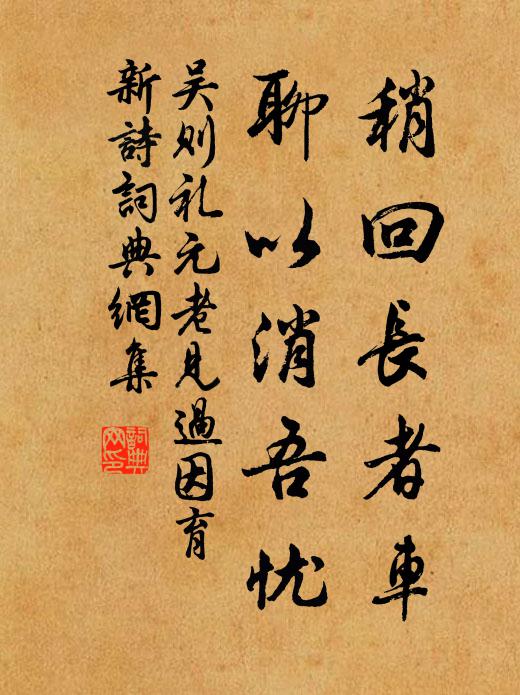 稍回長者車
聊以消吾忧
吴则礼元老見過因育
新詩詞典網集
詞典
网印